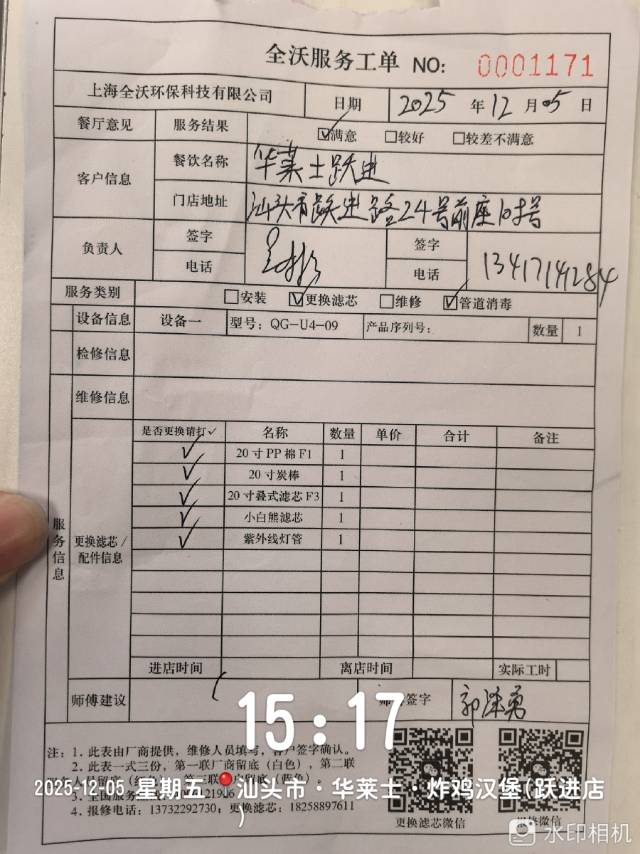 全沃服务工单 NO: 0001171
上海全沃环保科技有限公司 日期 2025 年 12 月 05 日
餐厅意见 服务结果 ☑满意 □较好 □较差不满意
客户信息 餐饮名称 华莱士跃进
门店地址 汕头市跃进路24号前座10号
负责人 签字 签字
电话 电话 13417141284
服务类别 □安装 ☑更换滤芯 □维修 ☑管道消毒
设备信息 设备一 型号：QG-U4-09 产品序列号： 数量 1
检修信息
维修信息
服务信息
更换滤芯/配件信息
是否更换请打✓ 名称 数量 单价 合计 备注
✓ 20寸PP棉F1 1
✓ 20寸炭棒 1
✓ 20寸叠式滤芯F3 1
✓ 小白熊滤芯 1
✓ 紫外线灯管 1
进店时间 离店时间 实际工时
师傅建议 签字 郭泽勇
15:17
注：1．此表由厂商提供，维修人员填写，客户签字确认。
2．此表一式三份，第一联厂商留底（白色），第二联
2025-12-05 星期五 汕头市·华莱士·炸鸡汉堡(跃进店)
3．全国服务
4．报修电话：13732292730；更换滤芯：18258897611
更换滤芯微信 报修微信
水印相机